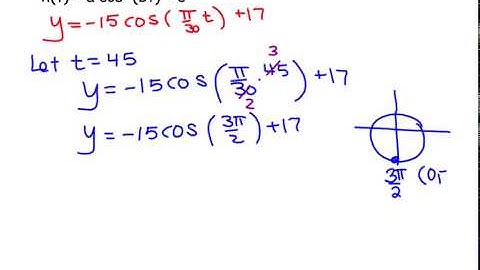 y = -15 cos (π/30 t) + 17
Let t = 45
3
y = -15 cos (π/30 · 45) + 17
2
y = -15 cos (3π/2) + 17
3π/2 (0,